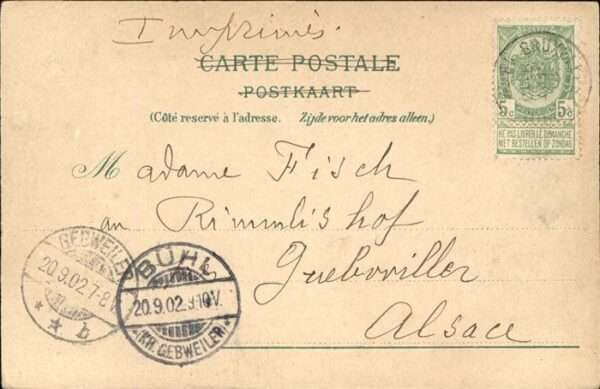 Imprimés.
CARTE POSTALE
POSTKAART
(Côté reservé à l'adresse. Zijde voor het adres alleen.)
5c 5c
NE PAS LIVRER LE DIMANCHE
NIET BESTELLEN OP ZONDAG
Madame Fisch
au Rimmlishof
Guebwiller
Alsace
GEBWEILER
20.9.02.7-8
* * b
BÜHL
20.9.02.9-10V.
(KR. GEBWEILER)